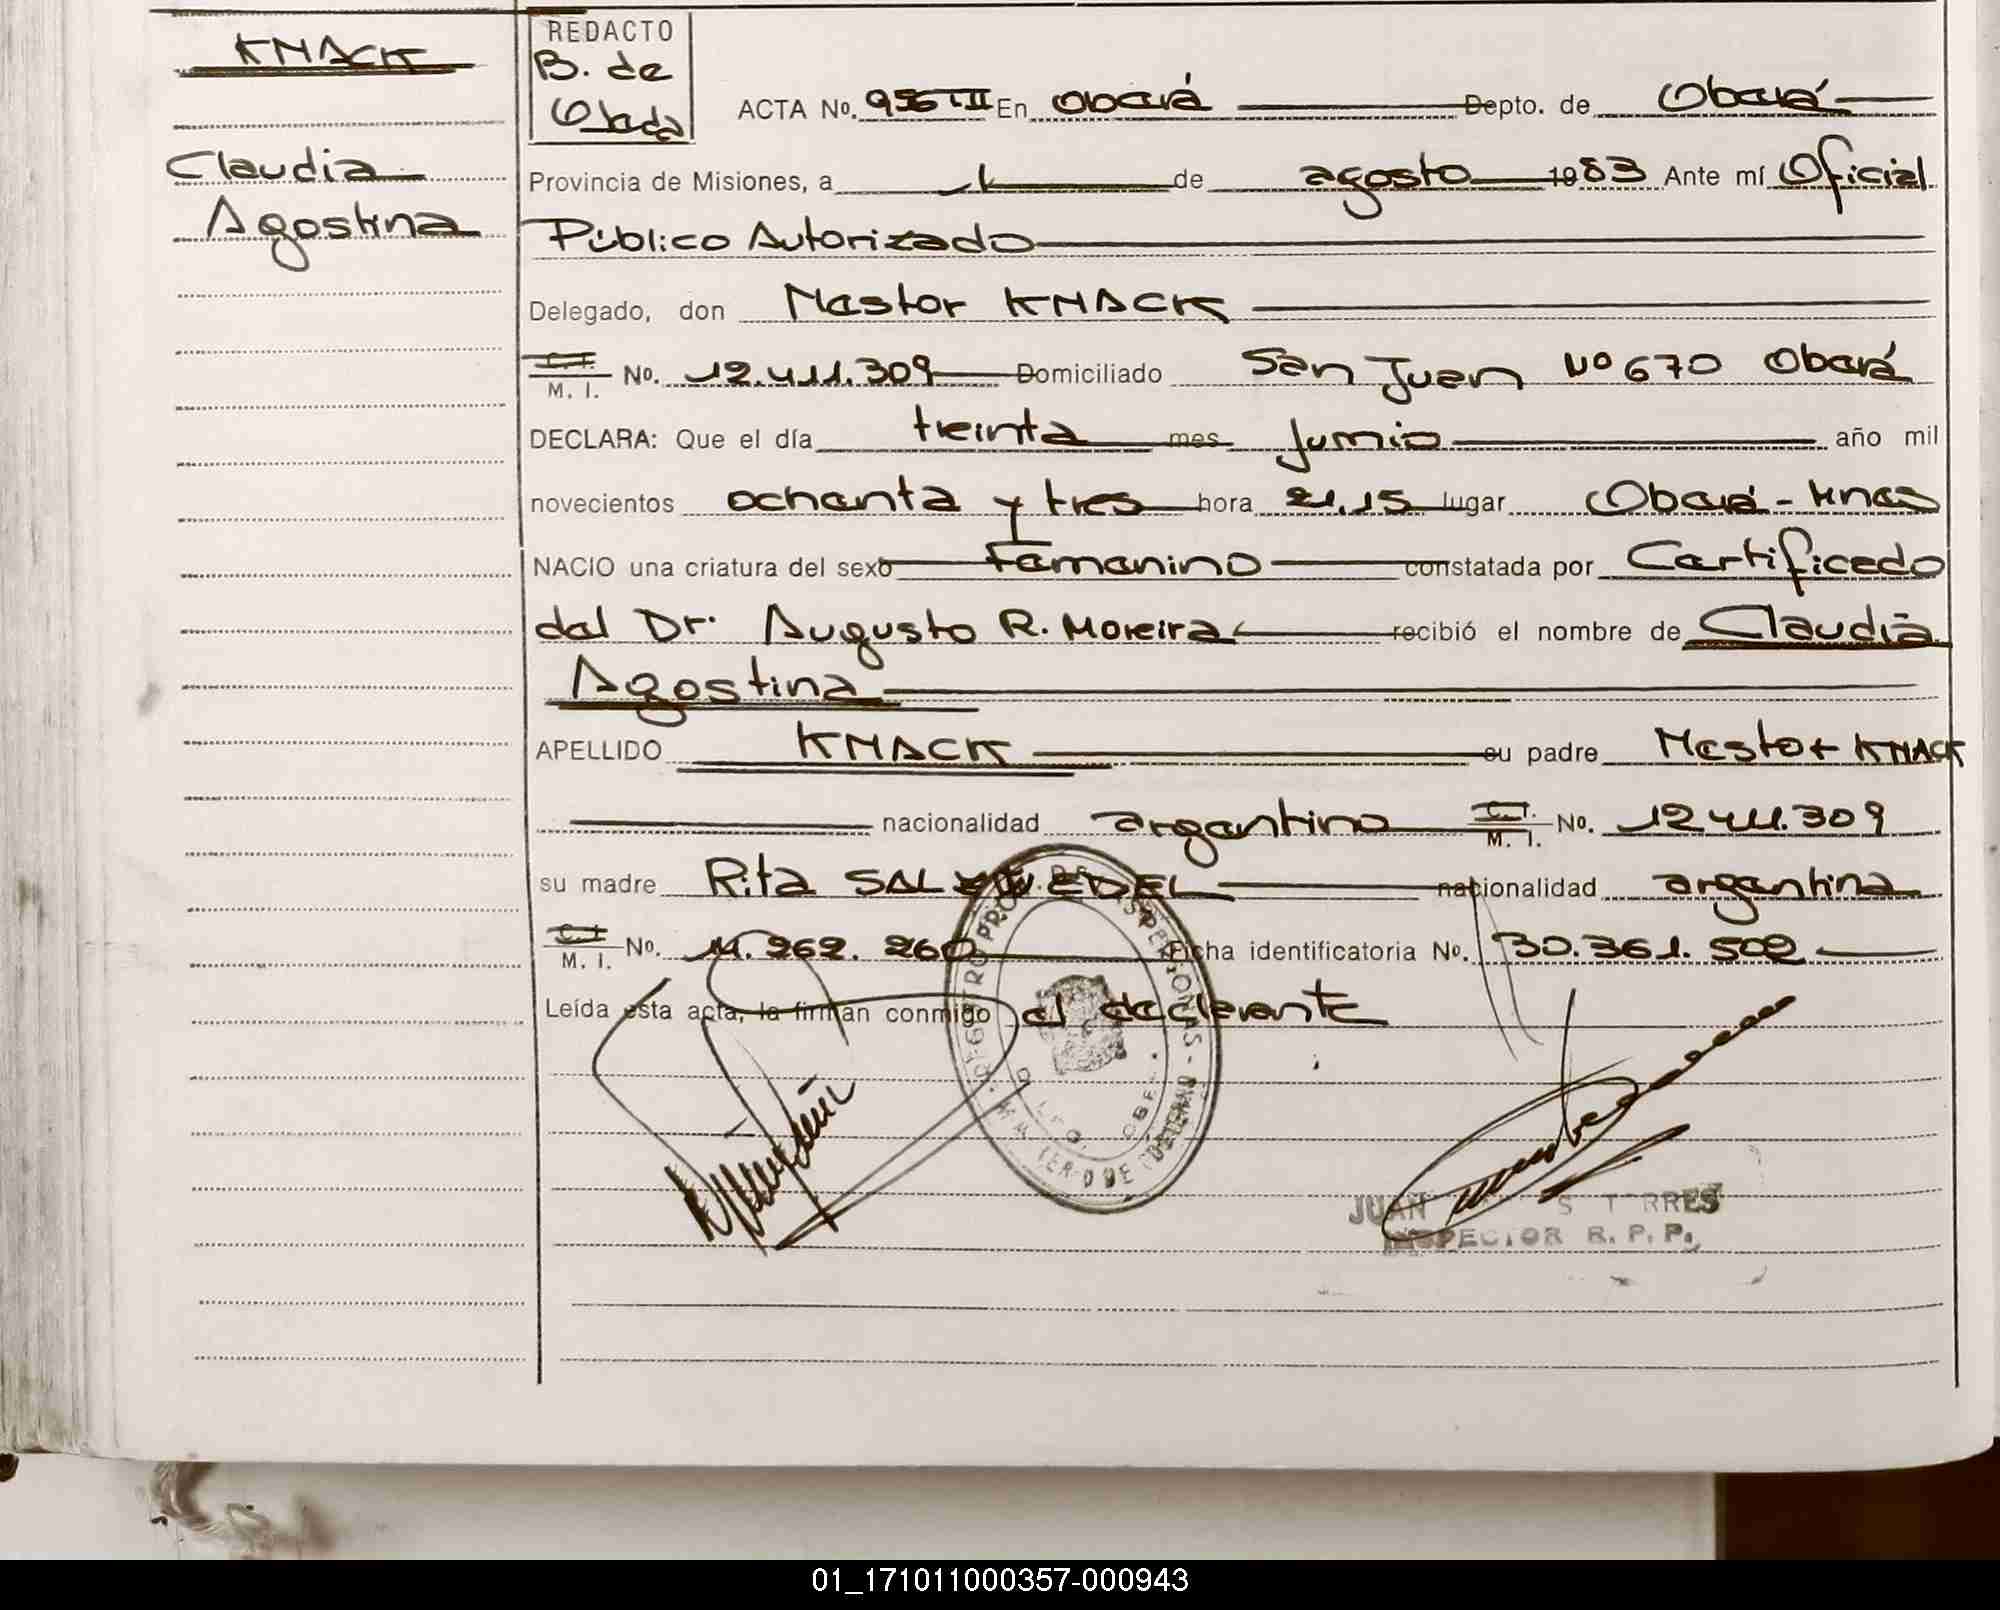 KNACK
Claudia
Agostina
REDACTO
B. de
ACTA No. 956 TII En Oberá Depto. de Oberá
Provincia de Misiones, a 1 de agosto 1983 Ante mí Oficial
Público Autorizado
Delegado, don Nestor KNACK
C. I. M. I. No. 12.411.309 Domiciliado San Juan Nº 670 Oberá
DECLARA: Que el día treinta mes junio año mil
novecientos ochenta y tres hora 21,15 lugar Oberá - Mnes
NACIO una criatura del sexo Femenino constatada por Certificado
del Dr. Augusto R. Moreira recibió el nombre de Claudia
Agostina
APELLIDO KNACK su padre Nestor KNACK
nacionalidad argentino C. I. M. I. No. 12.411.309
su madre Rita nacionalidad argentina
C. I. M. I. No. 14.262.260 Ficha identificatoria No. 30.361.502
Leída esta acta, la firman conmigo el declarante
JUAN S TORRES
INSPECTOR R. P. P.
01_171011000357-000943